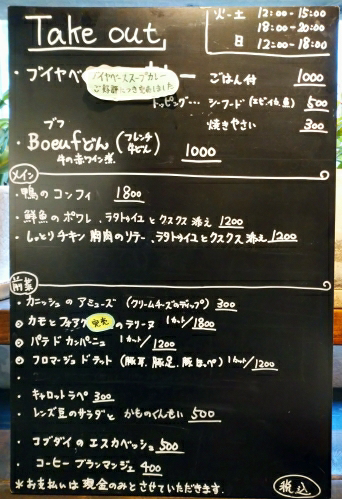 Take out
火-土 12:00-15:00
18:00-20:00
日 12:00-18:00
・ブイヤベ
ブイヤベーススープカレー
ご好評につき
しました
レー ごはん付 1000
トッピング… シーフード(エビ、イカ、魚) 500
焼きやさい 300
ブフ
・Boeufどん (フレンチ牛どん) 1000
牛の赤ワイン煮
メイン
・鴨のコンフィ 1800
・鮮魚のポワレ、ラタトゥイユとクスクス添え 1200
・しっとりチキン胸肉のソテー、ラタトゥイユとクスクス添え 1200
前菜
・カニッシュのアミューズ (クリームチーズのディップ) 300
カモとフォアグ
完売
のテリーヌ 1カット/1800
パテドカンパーニュ 1カット/1200
フロマージュドテット (豚耳、豚足、豚ほっぺ) 1カット/1200
・キャロットラペ 300
・レンズ豆のサラダと かものくんせい 500
・コブダイのエスカベッシュ 500
・コーヒーブランマンジェ 400
＊お支払いは現金のみとさせていただきます。
税込